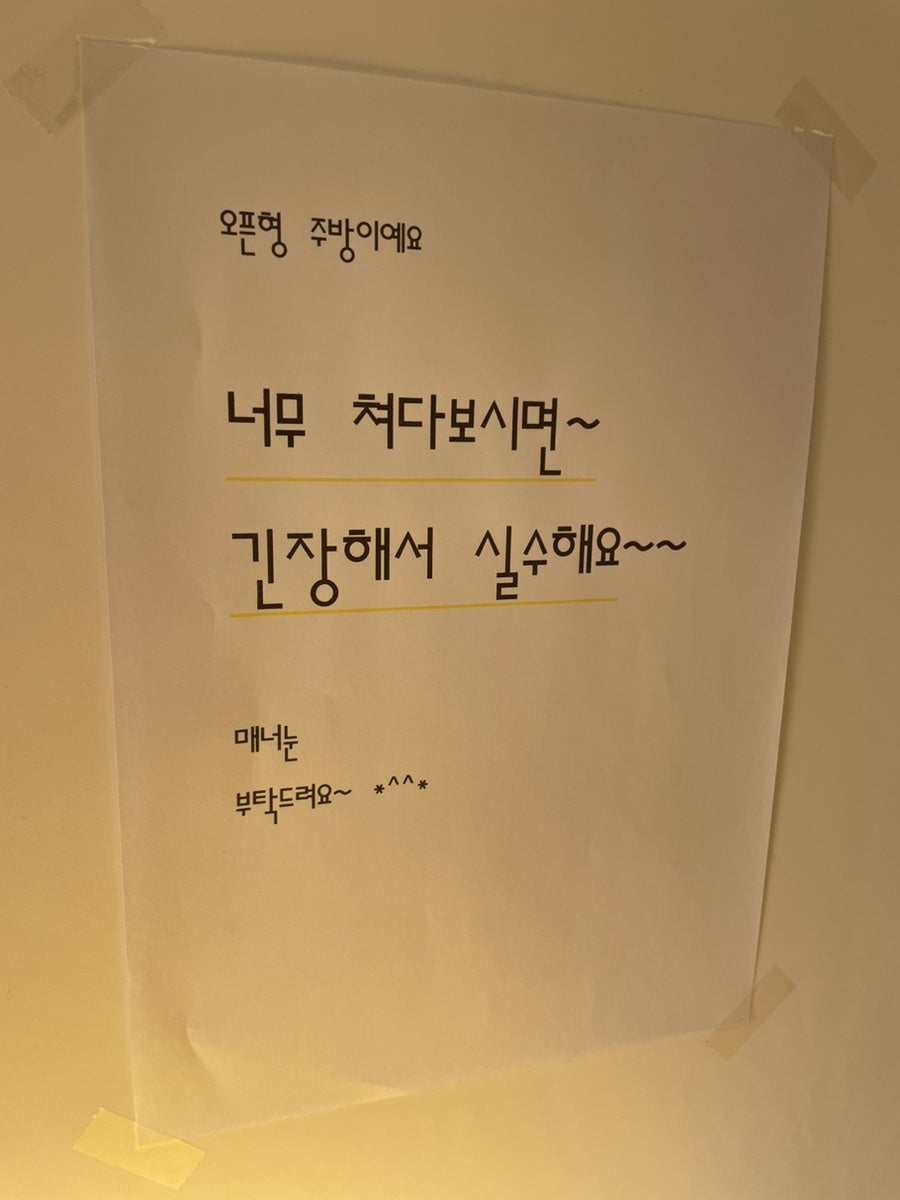 오픈형 주방이예요
너무 쳐다보시면~
긴장해서 실수해요~~
매너눈
부탁드려요~ *^^*